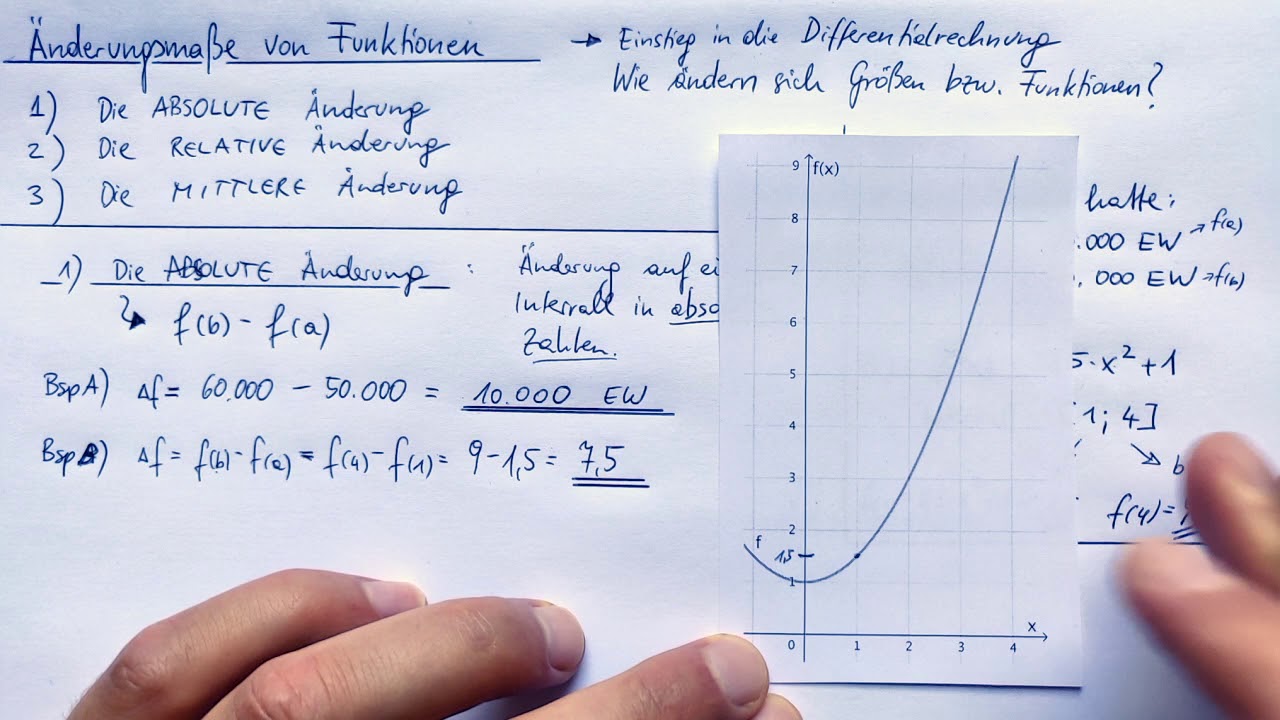 Änderungsmaße von Funktionen
→ Einstieg in die Differentialrechnung
Wie ändern sich Größen bzw. Funktionen?
1) Die ABSOLUTE Änderung
2) Die RELATIVE Änderung
3) Die MITTLERE Änderung
hatte:
.000 EW → f(a)
.000 EW → f(b)
1) Die ABSOLUTE Änderung : Änderung auf ei
Intervall in abso
Zahlen.
f(b) - f(a)
5·x²+1
1; 4]
b
f(4)=
BspA) Δf = 60.000 - 50.000 = 10.000 EW
BspB) Δf = f(b)-f(a) = f(4)-f(1) = 9-1,5 = 7,5
f(x)
9
8
7
6
5
4
3
2
1,5
1
f
0 1 2 3 4
x